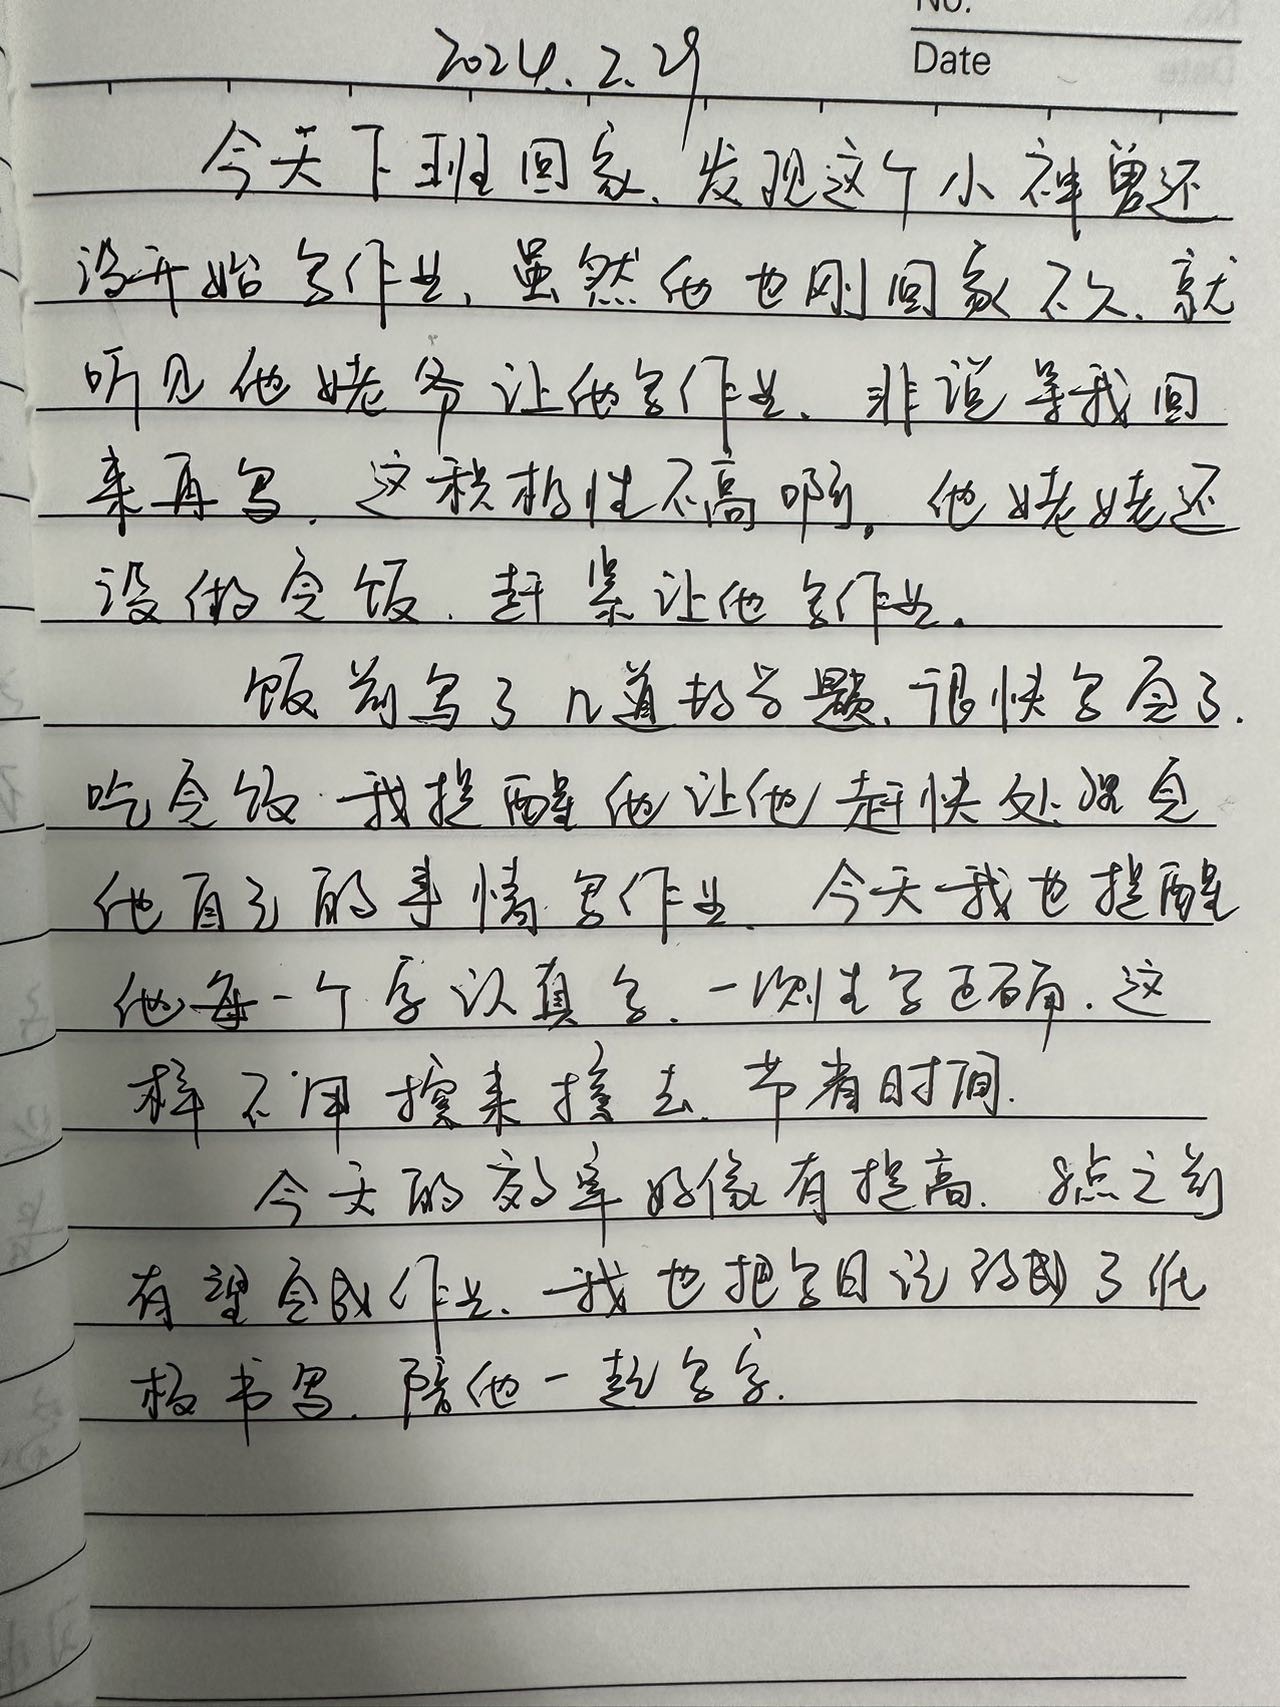 No.
Date
2024.2.29
今天下班回家、发现这个小神兽还
没开始写作业、虽然他也刚回家不久、就
听见他姥爷让他写作业、非说等我回
来再写、这积极性不高啊。他姥姥还
没做完饭、赶紧让他写作业。
饭前写了几道数学题、很快写完了.
吃完饭.我提醒他让他赶快处理完
他自己的事情.写作业、今天我也提醒
他每一个字认真写、一次性写正确.这
样不用擦来擦去、节省时间.
今天的效率好像有提高、8点之前
有望完成作业、我也把写日记改到了纸
板书写、陪他一起写字.